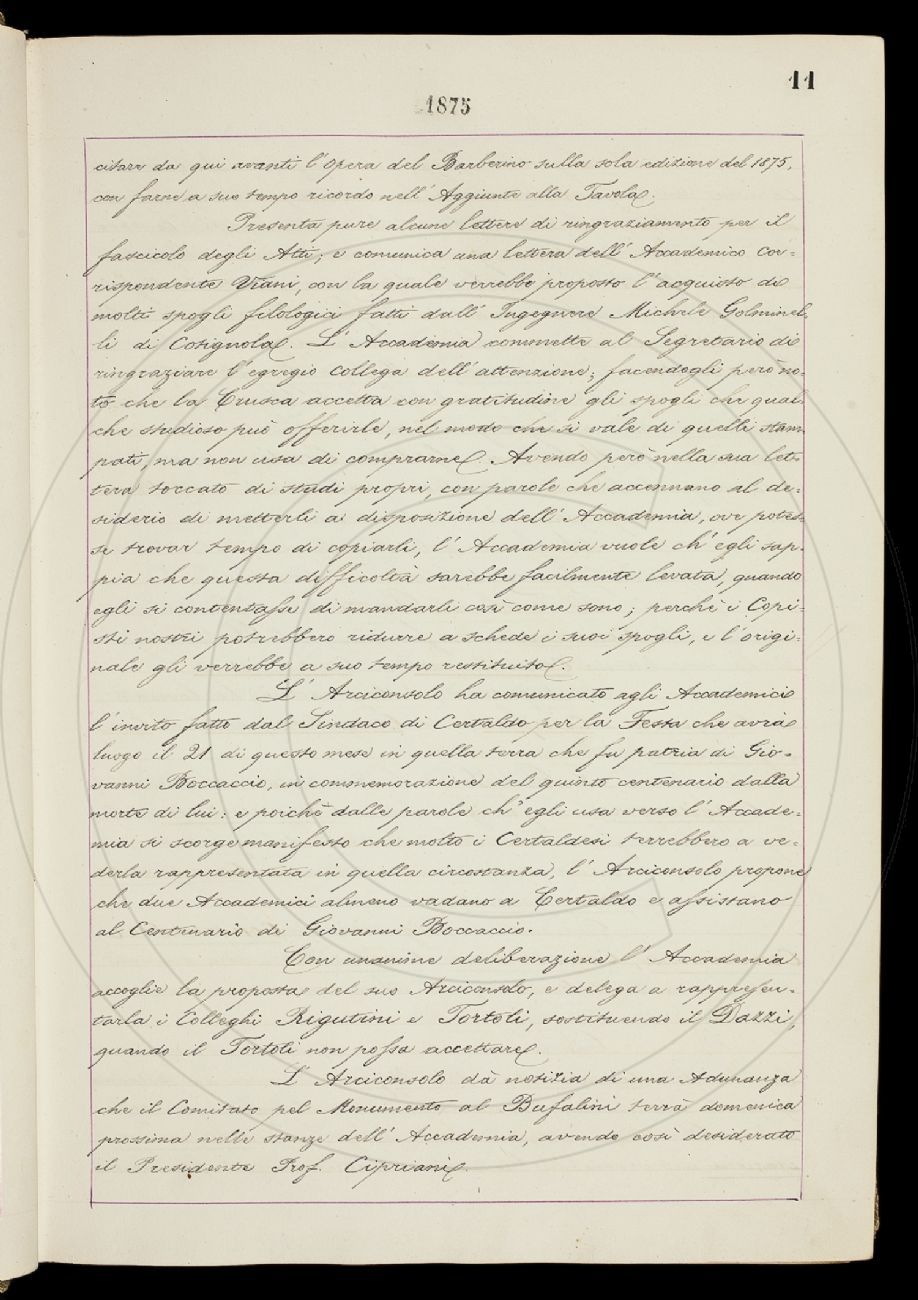 11
1875
citare da qui avanti l'opera del Barberino sulla sola edizione del 1875,
con farne a suo tempo ricordo nell'Aggiunte alla Tavola.
Presenta pure alcune lettere di ringraziamento per il
fascicolo degli Atti; e comunica una lettera dell'Accademico Cor=
rispondente Viani, con la quale verrebbe proposto l'acquisto di
molti spogli filologici fatti dall'Ingegnere Michele Golminel=
li di Cotignola. L'Accademia commette al Segretario di
ringraziare l'egregio collega dell'attenzione; facendogli però no=
to che la Crusca accetta con gratitudine gli spogli che qual=
che studioso può offerirle, nel modo che si vale di quelli stam
pati, ma non usa di comprarne. Avendo però nella sua let=
tera toccato di studi propri, con parole che accennano al de=
siderio di metterli a disposizione dell'Accademia, ove potes=
se trovar tempo di copiarli, l'Accademia vuole ch'egli sap=
pia che questa difficoltà sarebbe facilmente levata, quando
egli si contentasse di mandarli così come sono; perchè i Copi=
sti nostri potrebbero ridurre a schede i suoi spogli, e l'origi=
nale gli verrebbe a suo tempo restituito.
L'Arciconsolo ha comunicato agli Accademici
l'invito fatto dal Sindaco di Certaldo per la Festa che avrà
luogo il 21 di questo mese in quella terra che fu patria di Gio=
vanni Boccaccio, in commemorazione del quinto centenario dalla
morte di lui: e poichè dalle parole ch'egli usa verso l'Accade=
mia si scorge manifesto che molto i Certaldesi terrebbero a ve=
derla rappresentata in quella circostanza, l'Arciconsolo propone
che due Accademici almeno vadano a Certaldo e assistano
al Centenario di Giovanni Boccaccio.
Con unanime deliberazione l'Accademia
accoglie la proposta del suo Arciconsolo, e delega a rappresen=
tarla i Colleghi Rigutini e Tortoli, sostituendo il Dazzi,
quando il Tortoli non possa accettare.
L'Arciconsolo dà notizia di una Adunanza
che il Comitato pel Monumento al Bufalini terrà domenica
prossima nelle stanze dell'Accademia, avendo così desiderato
il Presidente Prof. Cipriani.